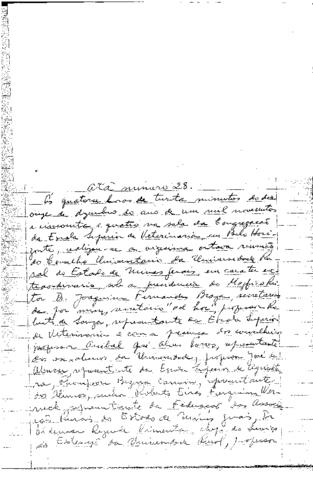 Ata número 28.
Às quatorze horas de trinta minutos do dia
onze de dezembro do ano de um mil novecentos
e cincoenta e quatro na sala da Congregação
da Escola Superior de Veterinária, em Belo Hori-
zonte, realizou-se a vigesima oitava reunião
do Conselho Universitário da Universidade Ru-
ral do Estado de Minas Gerais, em carater ex-
traordinario, sob a presidencia do Magfco Rei-
tor D. Joaquim Fernandes Braga, secretaria
da por mim, secretario ad hoc, professor
de Souza, representante da Escola Superior
de Veterinária e com a presença dos conselheiros
professor Anibal Alves Torres, representante
dos ex-alunos da Universidade, professor José de
Alencar, representante da Escola Superior de Agricultu-
ra, representante
de Alunos, senhor Roberto
representante da Federação das Associa-
ções Rurais do Estado de Minas Gerais, Dr.
Rezende Pimenta, chefe do Serviço
de Extensão da Universidade Rural, professor